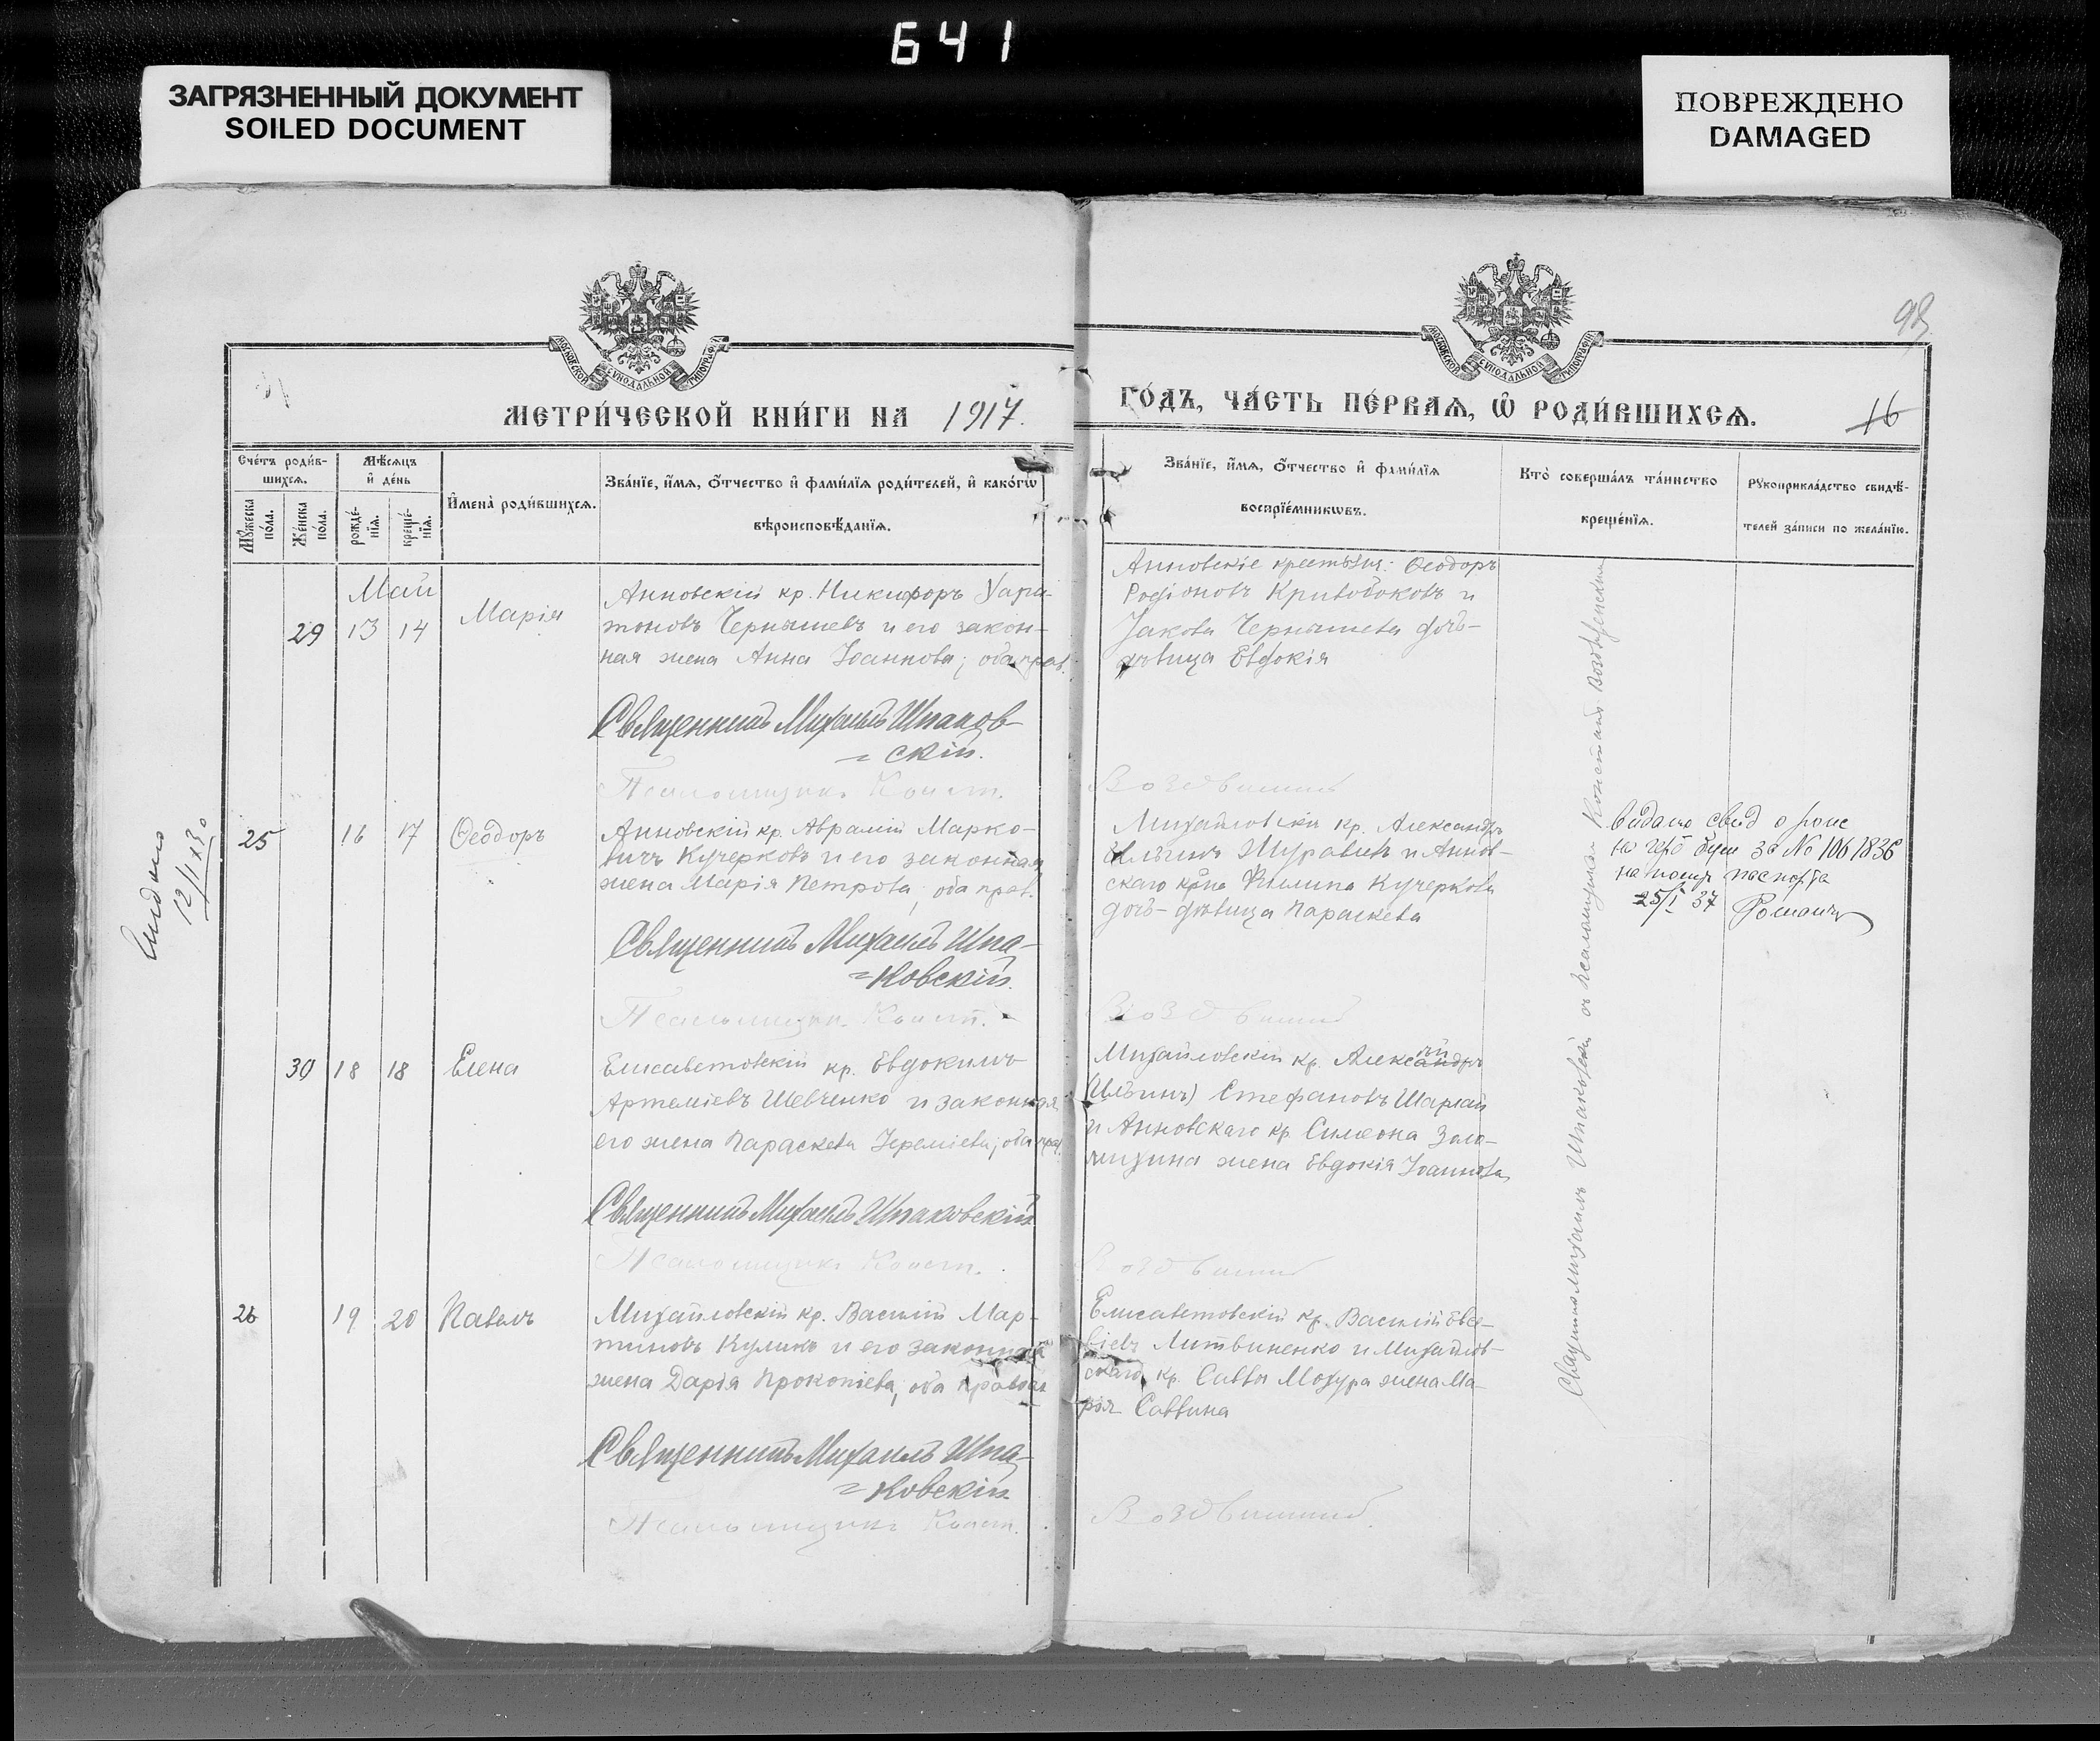 641
ЗАГРЯЗНЕННЫЙ ДОКУМЕНТ
SOILED DOCUMENT
ПОВРЕЖДЕНО
DAMAGED
98
МОСКОВСКОЙ СУНОДАЛЬНОЙ ТИПОГРАФІИ
МОСКОВСКОЙ СУНОДАЛЬНОЙ ТИПОГРАФІИ
МЕТРИ́ЧЕСКОЙ КНИ́ГИ НА 1917.
ГО́ДЪ, ЧА́СТЬ ПЕ́РВАѦ, Ѡ РОДИ́ВШИХСѦ.
16
Сче́тъ роди́в-
шихсѧ.
Мꙋ́жеска
по́ла.
Же́нска
по́ла.
Мѣ́сѧцъ
и҆ де́нь
рожде́-
нїѧ.
креще́-
нїѧ.
И҆мена̀ роди́вшихсѧ.
Зва́нїе, и҆́мѧ, ѻ҆́тчество и҆ фами́лїѧ роди́телей, и҆ како́гѡ
вѣроисповѣ́данїѧ.
Зва́нїе, и҆́мѧ, ѻ҆́тчество и҆ фами́лїѧ
воспрїе́мникѡвъ.
Кто̀ соверша́лъ та́инство
креще́нїѧ.
Рꙋкоприкла́дство свидѣ́-
телей за́писи по жела́нїю.
Май
29 13 14 Марія
Анновскій кр. Никифоръ Хари-
тоновъ Чернышевъ и его закон-
ная жена Анна Іоаннова; оба прав.
Священникъ Михаилъ Шпаков-
=скій.
Псаломщикъ Конст.
Анновскіе крестьяне: Ѳеодоръ
Родіоновъ Кривобоковъ и
Іакова Чернышева дочь-
дѣвица Евдокія
Воздвиженскій
25 16 17 Ѳеодоръ
Анновскій кр. Авраамій Марко-
вичъ Кучерковъ и его законная
жена Марія Петрова; оба прав.
Священникъ Михаилъ Шпа-
=ковскій.
Псаломщикъ Конст.
Михайловскій кр. Александръ
Ильинъ Журавивъ и Аннов-
скаго кр-на Филиппа Кучеркова
дочь-дѣвица Параскева
Воздвиженскій
Видано свид о рожд
за № 106 1836
паспорта
25/I 37
30 18 18 Елена
Елисаветовскій кр. Евдокимъ
Артеміевъ Шевченко и законная
его жена Параскева Іереміева; оба прав.
Священникъ Михаилъ Шпаковскій
Псаломщикъ Конст.
Михайловскій кр. Александръ
(Ильинъ) Стефановъ Шарлай
и Анновскаго кр. Симеона Золо-
тухина жена Евдокія Іоаннова
Воздвиженскій
26 19 20 Павелъ
Михайловскій кр. Василій Мар-
тиновъ Куликъ и его законная
жена Дарія Прокопіева, оба правосл
Священникъ Михаилъ Шпа-
=ковскій
Псаломщикъ Конст.
Елисаветовскій кр. Василій Евсе-
віевъ Литвиненко и Михайлов-
скаго кр. Саввы Мозура жена Ма-
рія Саввина
Воздвиженскій
Священникъ Михаилъ Шпаковскій съ псаломщикомъ Константиномъ Воздвиженскимъ